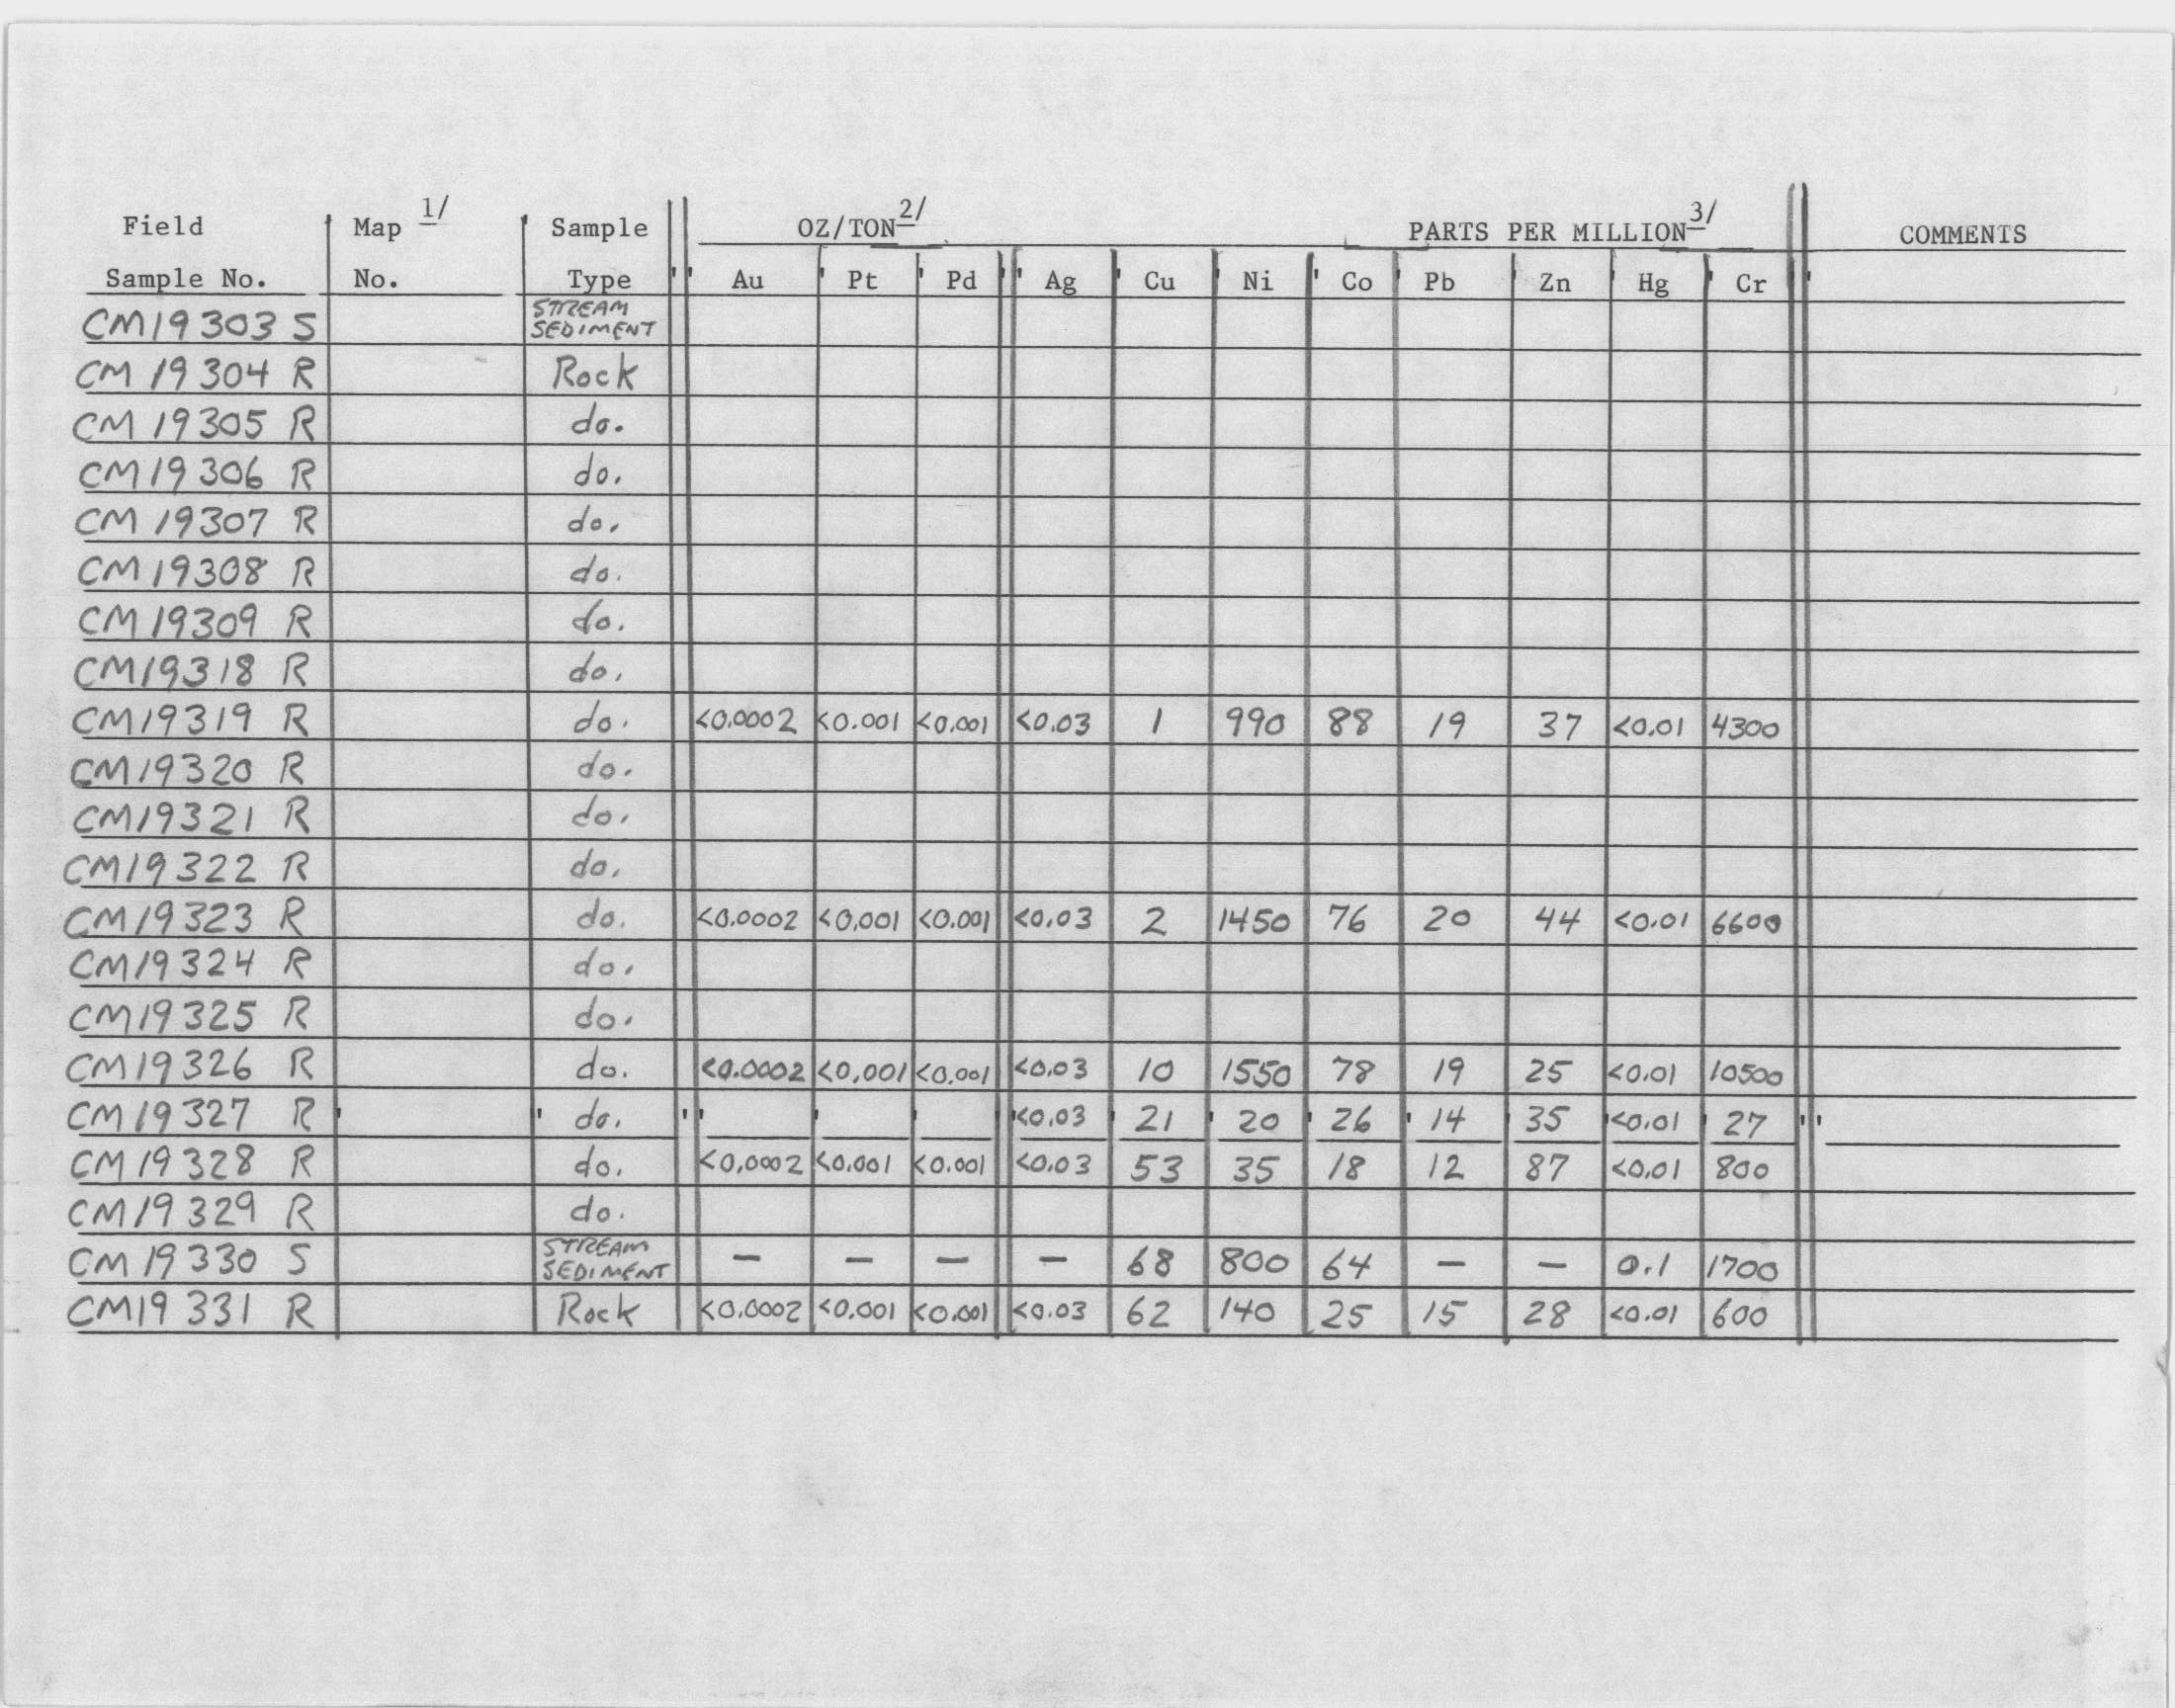 Field Map 1/ Sample OZ/TON 2/ PARTS PER MILLION 3/ COMMENTS
Sample No. No. Type Au Pt Pd Ag Cu Ni Co Pb Zn Hg Cr
CM19303 S STREAM SEDIMENT
CM 19304 R Rock
CM 19305 R do.
CM19306 R do.
CM 19307 R do.
CM 19308 R do.
CM 19309 R do.
CM19318 R do.
CM19319 R do. <0.0002 <0.001 <0.001 <0.03 1 990 88 19 37 <0.01 4300
CM19320 R do.
CM19321 R do.
CM19322 R do.
CM19323 R do. <0.0002 <0.001 <0.001 <0.03 2 1450 76 20 44 <0.01 6600
CM19324 R do.
CM19325 R do.
CM19326 R do. <0.0002 <0.001 <0.001 <0.03 10 1550 78 19 25 <0.01 10500
CM19327 R do. <0.03 21 20 26 14 35 <0.01 27
CM19328 R do. <0.0002 <0.001 <0.001 <0.03 53 35 18 12 87 <0.01 800
CM19329 R do.
CM 19330 S STREAM SEDIMENT — — — — 68 800 64 — — 0.1 1700
CM19331 R Rock <0.0002 <0.001 <0.001 <0.03 62 140 25 15 28 <0.01 600